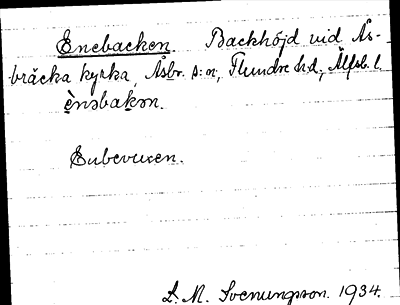 Enebacken. Backhöjd vid Ås-
bräcka kyrka, Åsbr. s:n, Flundre hd., Älfsb. l.
ènəbakən.
Enbevuxen.
L. M. Svenungsson. 1934.